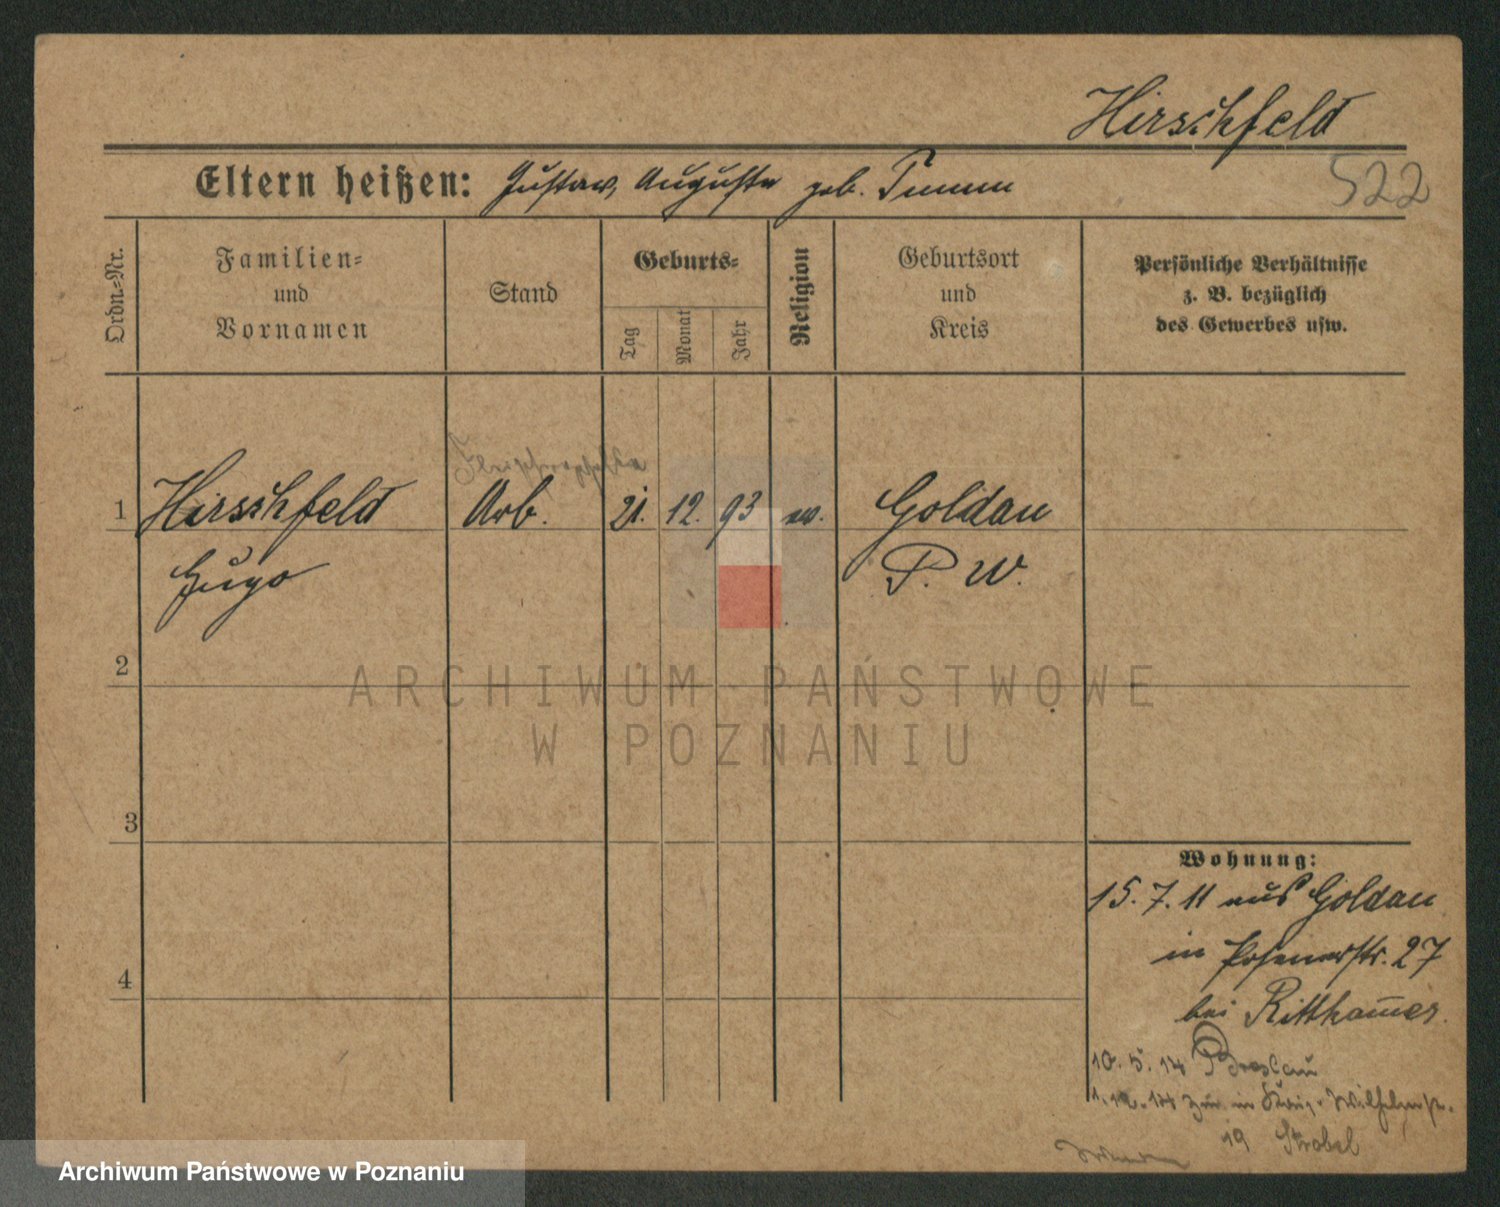 Hirschfeld
Eltern heißen: Gustav, Auguste geb. Timm
522
Ordn.-Nr.
Familien-
und
Vornamen
Stand
Geburts-
Tag
Monat
Jahr
Religion
Geburtsort
und
Kreis
Persönliche Verhältnisse
z. B. bezüglich
des Gewerbes usw.
Fleischergeselle
1 Hirschfeld Arb. 21. 12. 93 ev. Goldau
Hugo P. W.
2
ARCHIWUM PAŃSTWOWE
W POZNANIU
3
Wohnung:
15. 7. 11 aus Goldau
in Posenerstr. 27
4
bei Rittham̅er.
10. 5. 14 Breslau
1. 12. 14 zur. in Kais.- Wilhelmstr.
19 Strobel
Archiwum Państwowe w Poznaniu